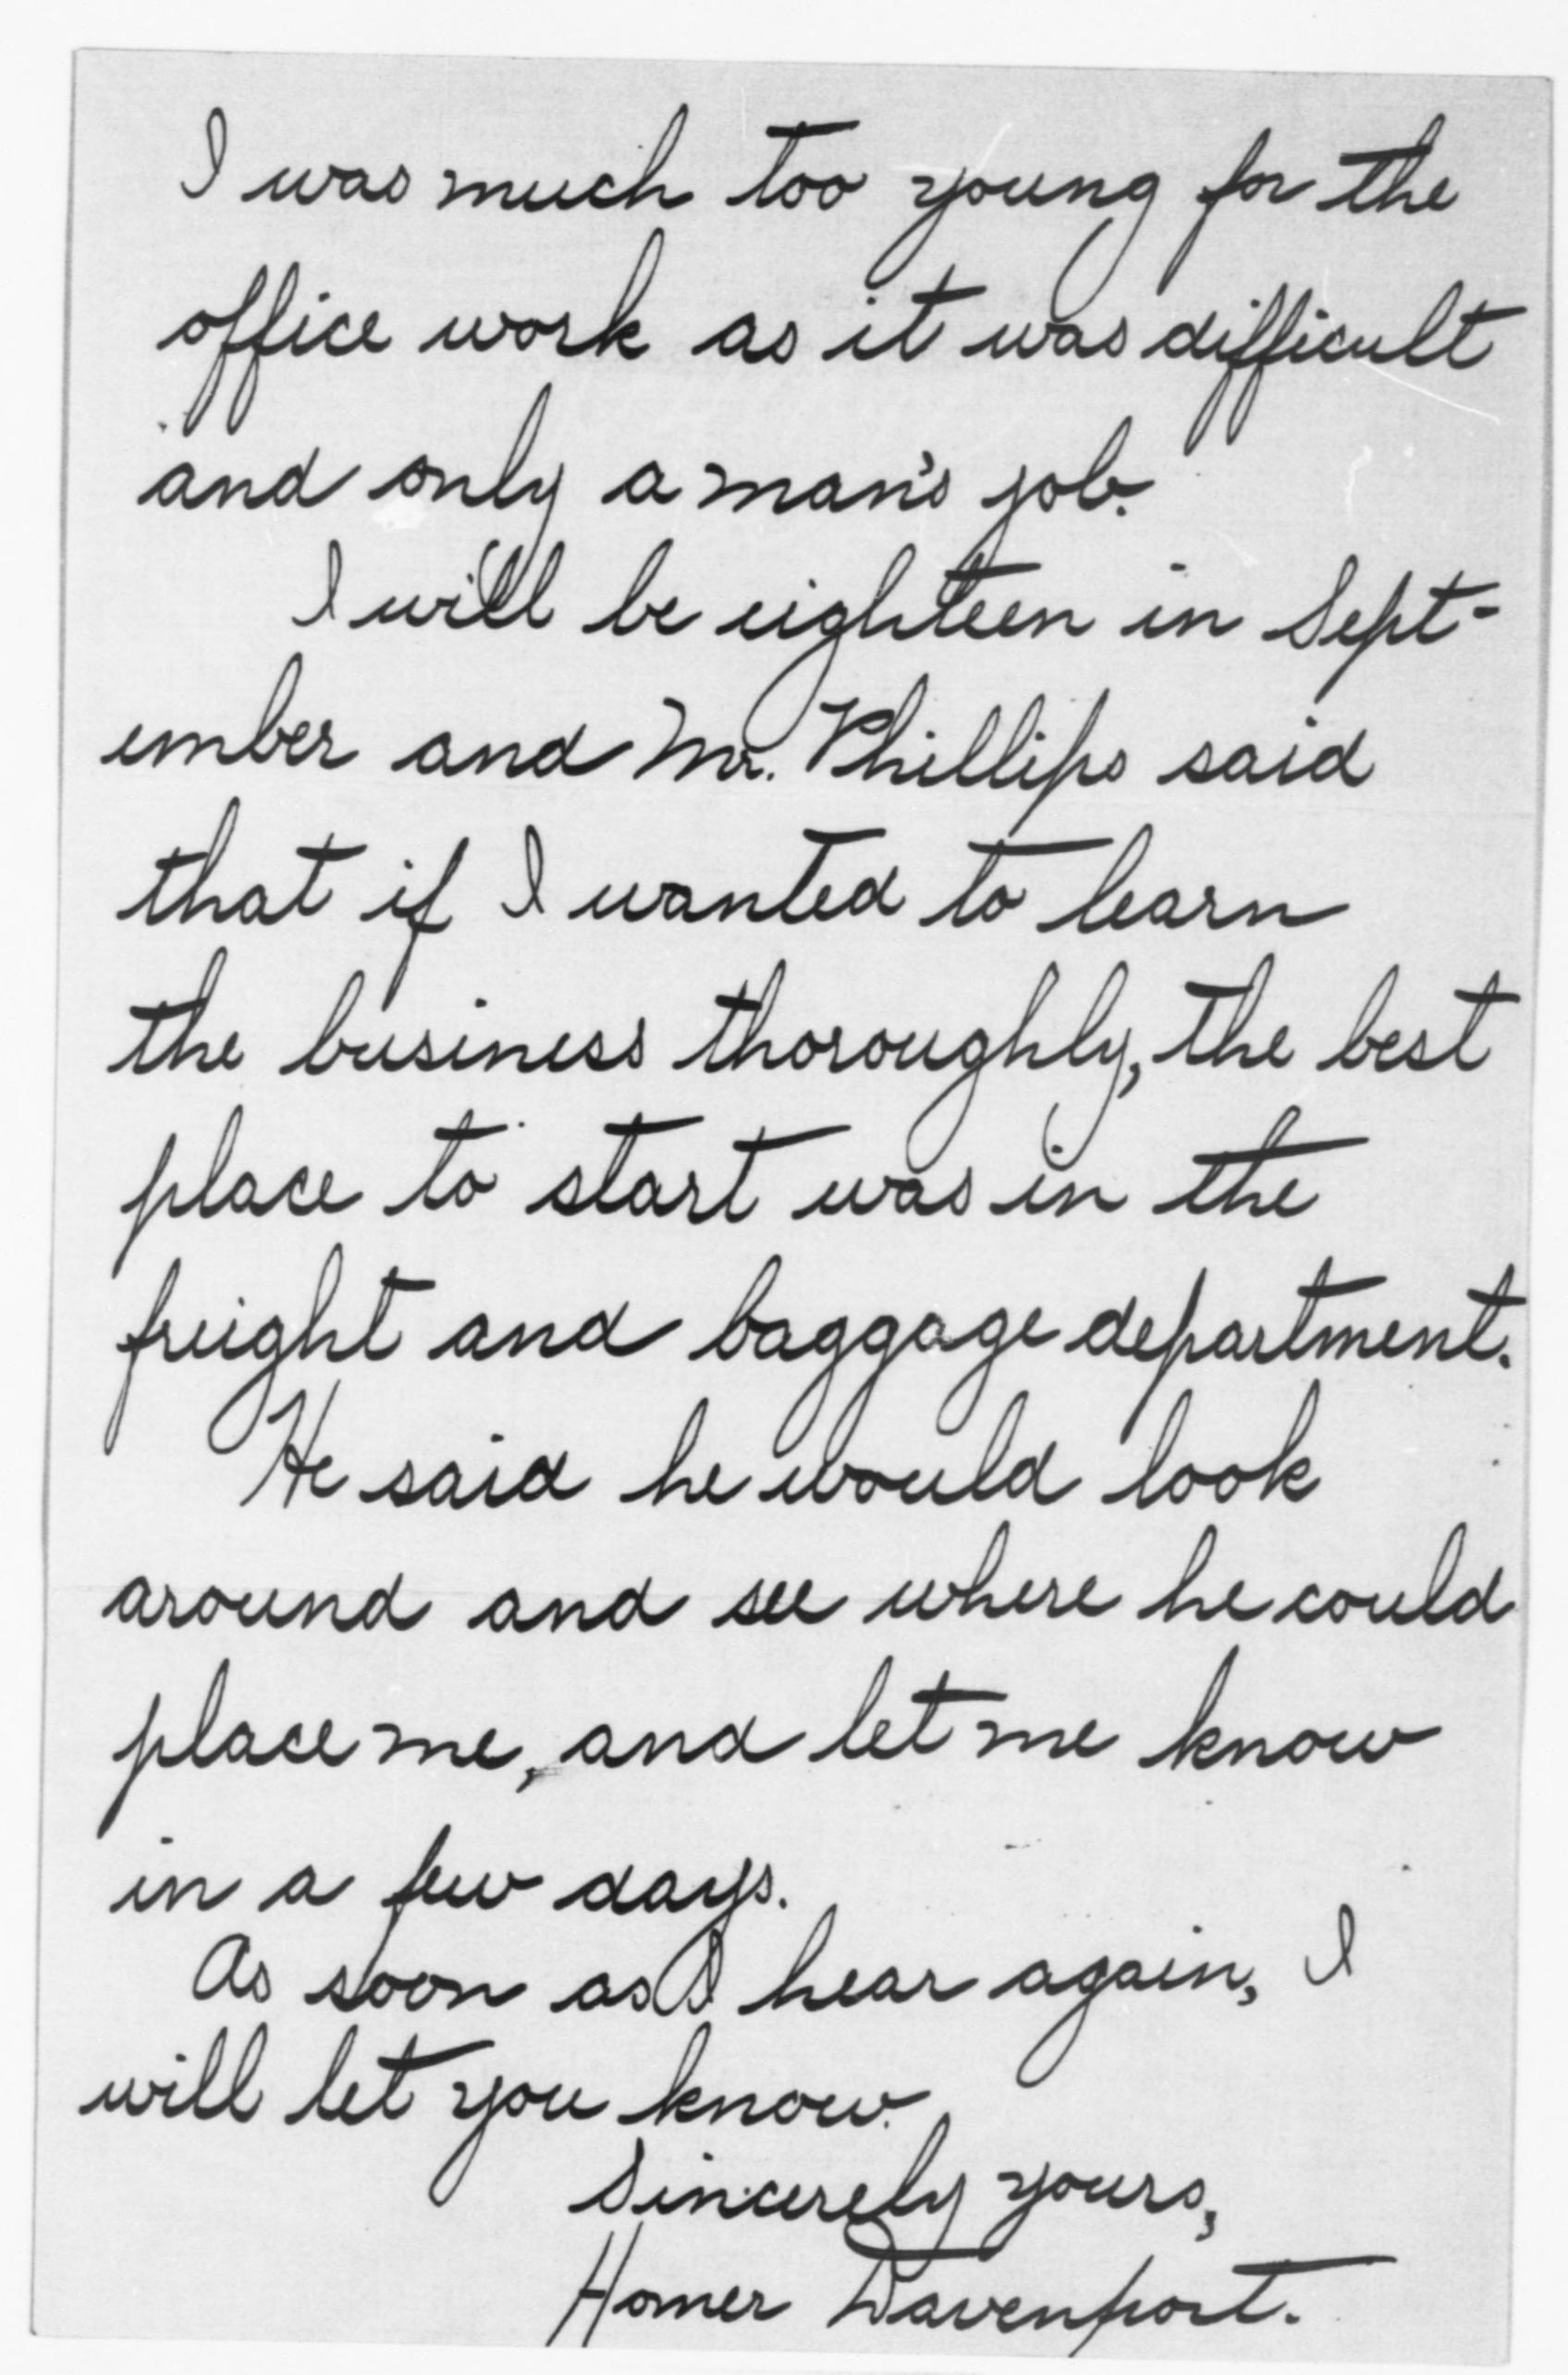 I was much too young for the
office work as it was difficult
and only a man's job.
I will be eighteen in Sept-
ember and Mr. Phillips said
that if I wanted to learn
the business thoroughly, the best
place to start was in the
freight and baggage department.
He said he would look
around and see where he could
place me, and let me know
in a few days.
As soon as I hear again, I
will let you know.
Sincerely yours,
Homer Davenport.